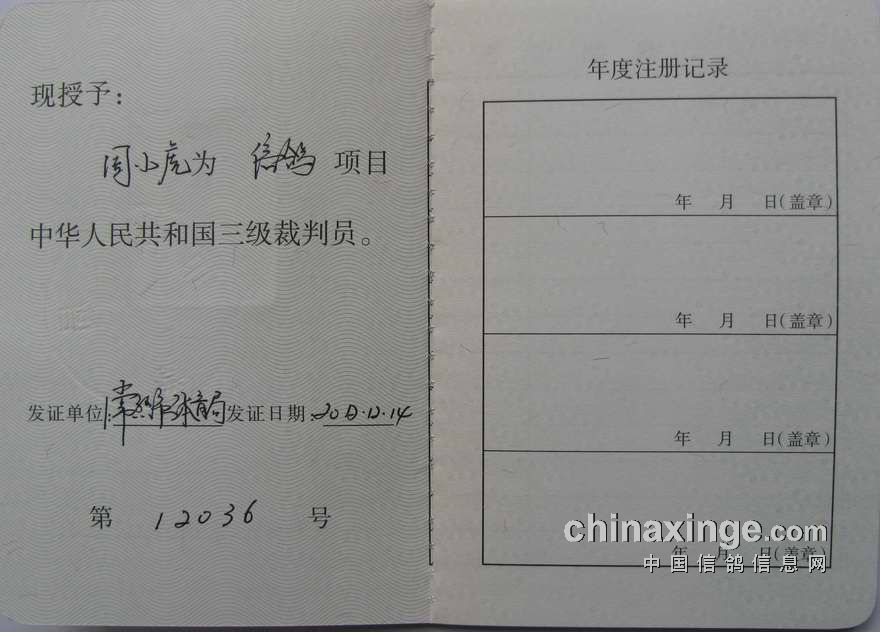 现授予：
周小虎为 信鸽 项目
中华人民共和国三级裁判员。
发证单位：常熟市体育局 发证日期：2012.12.14
第 12036 号
年度注册记录
年 月 日（盖章）
年 月 日（盖章）
年 月 日（盖章）
年 月 日（盖章）
chinaxinge.com
中国信鸽信息网